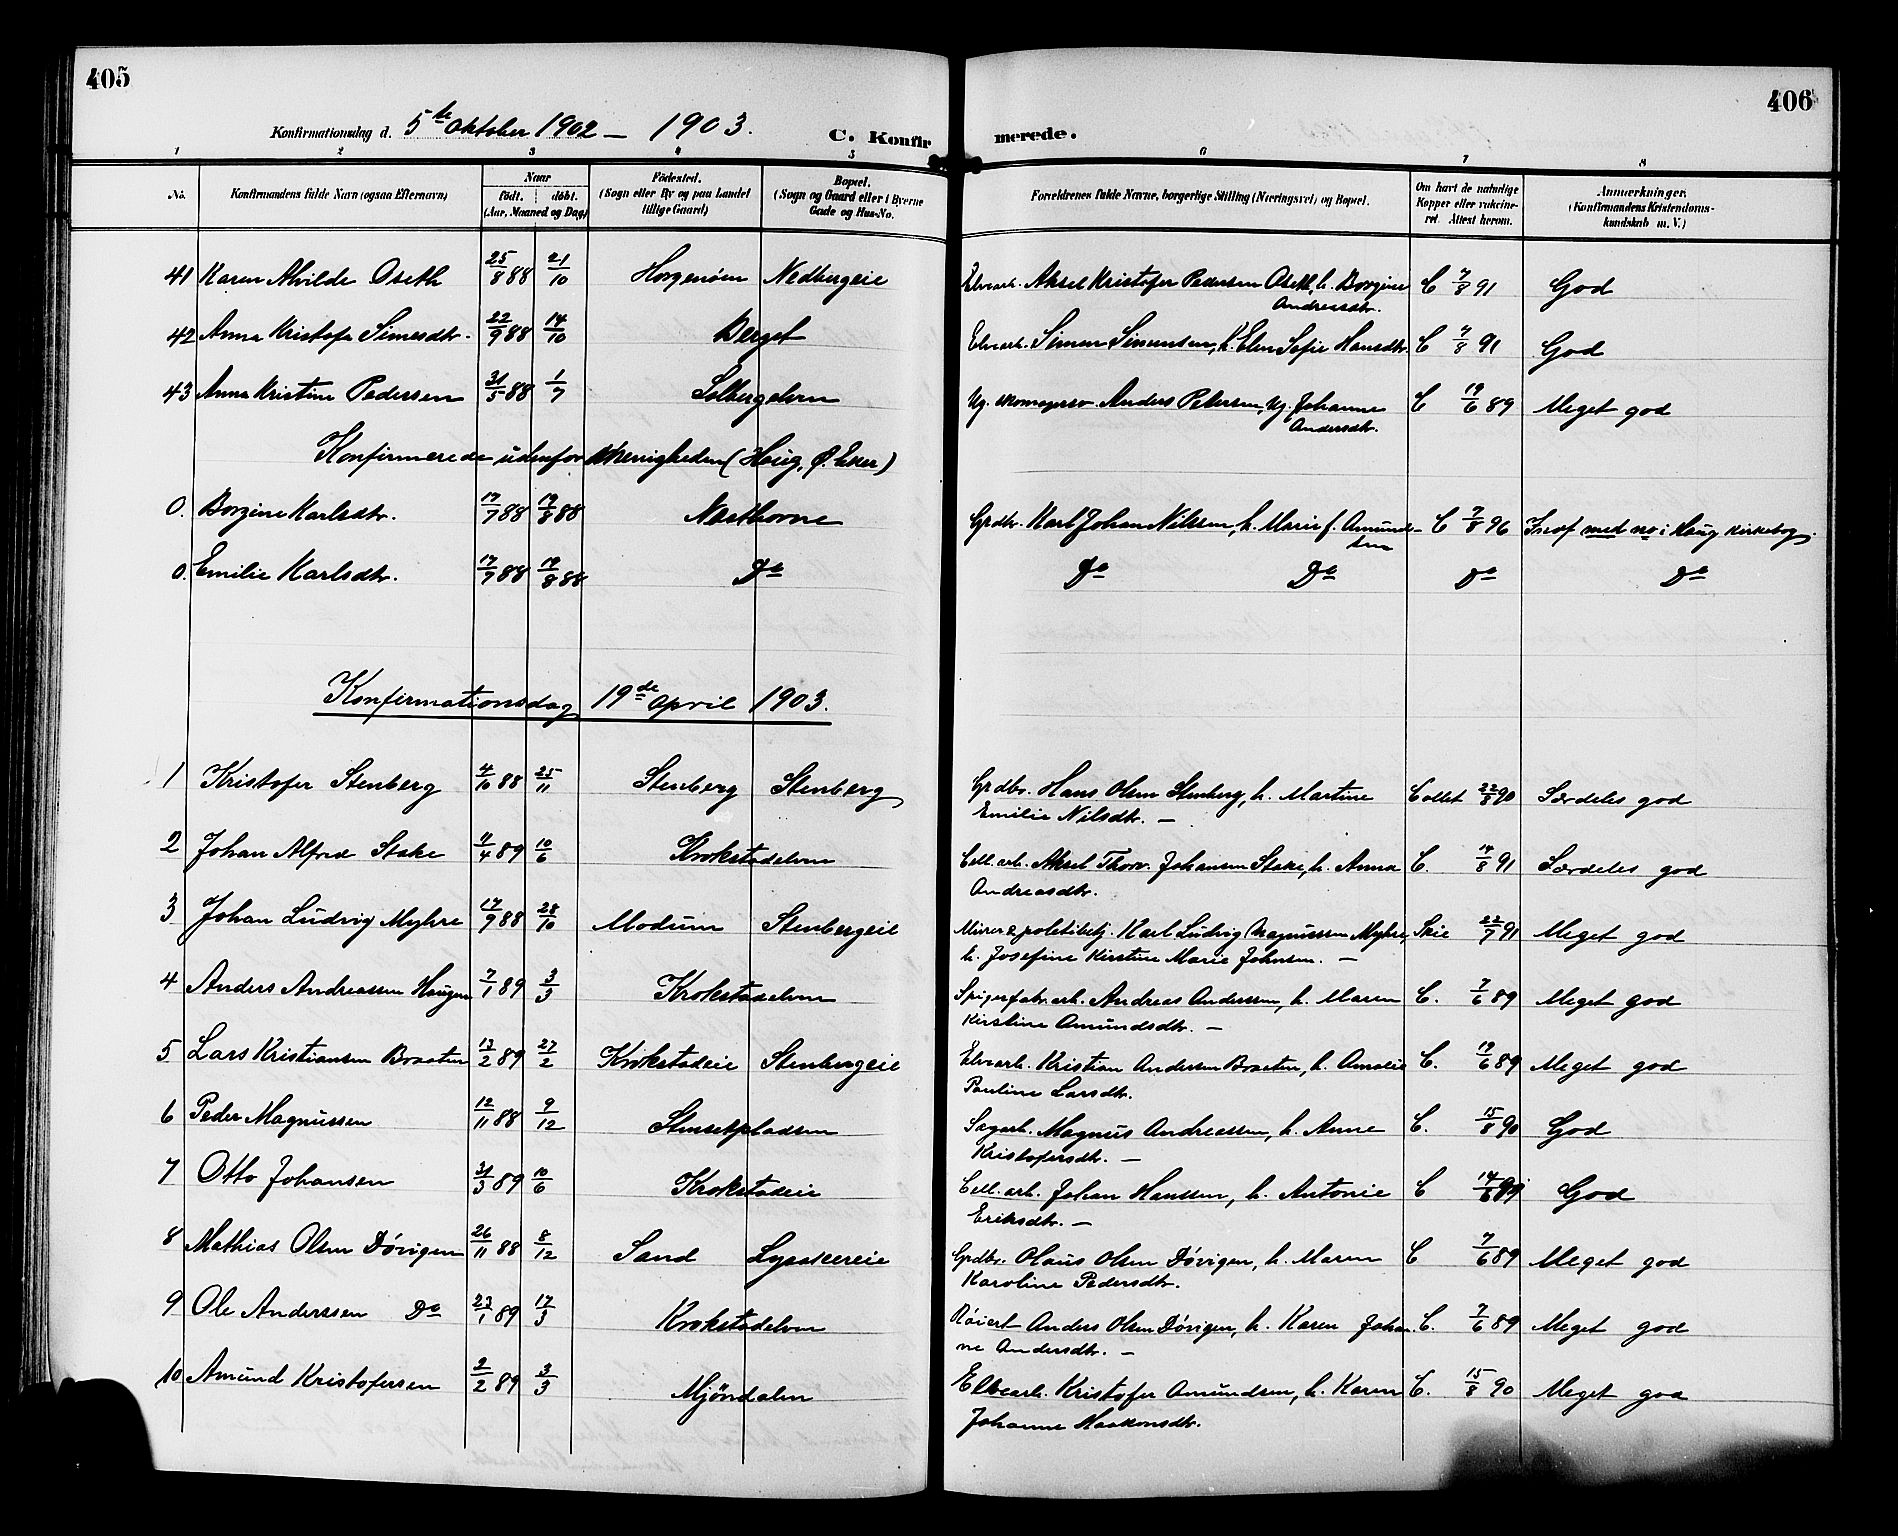 405
406
Konfirmationsdag d. 5te Oktober 1902 — 1903.
C. Konfir merede.
1 2 3 4 5 6 7 8
No. Konfirmandens fulde Navn (ogsaa Efternavn) Naar Født. døbt. (Aar, Maaned og Dag) Fødested. (Sogn eller By og paa Landet tillige Gaard) Bopæl. (Sogn og Gaard eller i Byerne Gade og Hus-No. Forældrenes fulde Navne, borgerlige Stilling (Næringsvei) og Bopæl. Om havt de naturlige Kopper eller vaccineret. Attest herom. Anmerkninger. (Konfirmandens Kristendomskundskab m. V.)
41 Karen Alvilde Oseth 25/8 88 21/10 Horgenøen Nedbergeie Elvearb. Aksel Kristofer Pedersen Oseth, h. Borgine Andreasdtr. C 7/8 91 God
42 Anna Kristofa Simensdtr. 22/9 88 14/10 Berget Elvearb. Simon Simensen, h. Elen Sofie Hansdtr. C 7/8 91 God
43 Anna Kristine Pedersen 31/5 88 1/7 Solbergelven Ug. skomagersv. Anders Petersen, Ug. Johanne Andersdtr. C 19/6 89 Meget god
Konfirmerede udenfor menigheden (Haug, Ø. Eker)
0. Borgine Karlsdtr. 17/7 88 19/8 88 Narthorne Grdbr. Karl Johan Nilssen, h. Marie f. Amundsen C 7/8 96 Indf med no i Haug kirkebog.
0. Emilie Karlsdtr. 17/7 88 19/8 88 Do Do Do Do Do
Konfirmationsdag 19de April 1903.
1 Kristofer Stenberg 4/10 88 25/11 Stenberg Stenberg Grdbr. Hans Olsen Stenberg, h. Martine Emilie Nilsdtr. — Collet 22/8 90 Særdeles god
2 Johan Alfred Stake 11/4 89 10/6 Krokstadelven Cell. arb. Aksel Thorv. Johansen Stake, h. Anna Andreasdtr. C. 14/8 91 Særdeles god
3 Johan Ludvig Myhre 17/9 88 28/10 Modum Stenbergeie Murer & politibetj. Karl Ludvig Magnussen Myhre, h. Josefine Kirstine Marie Johnsen. — Skie 22/7 91 Meget god
4 Anders Andreassen Haugen 7/1 89 3/3 Krokstadelven Spigerfabr. arb. Andreas Anderssen, h. Maren Kirstine Amundsdtr. — C. 7/6 89 Meget god
5 Lars Kristiansen Braaten 13/2 89 27/2 Krokstadeie Stenbergeie Elvearb. Kristian Andersen Braaten, h. Amalie Pauline Larsdtr. C. 19/6 89 Meget god
6 Peder Magnussen 12/11 88 9/12 Stensetpladsen Sagarb. Magnus Andreassen, h. Anne Kristofersdtr. — C. 15/8 90 God
7 Otto Johansen 31/3 89 10/6 Krokstadeie Cell. arb. Johan Hanssen, h. Antonie Eriksdtr. — C 14/8 God
8 Mathias Olsen Døvigen 26/11 88 8/12 Sand Lysakereie Grdbr. Olaus Olsen Døvigen, h. Maren Karoline Pedersdtr. C 7/6 89 Meget god
9 Ole Anderssen Do 23/1 89 17/3 Krokstadelven Røiert Anders Olsen Døvigen, h. Karen Johanne Andersdtr. — C. 7/6 89 Meget god
10 Amund Kristofersen 2/2 89 3/3 Mjøndalen Elvearb. Kristofer Amundsen, h. Karen Johanne Haakonsdtr. C. 15/8 90 Meget god